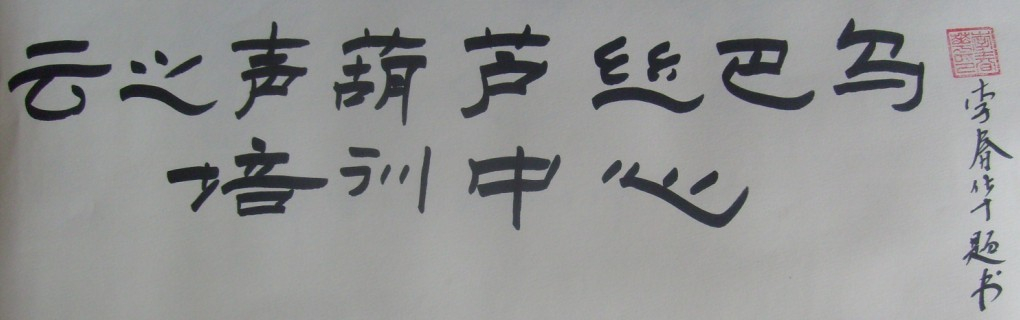 云之声葫芦丝巴乌
培训中心
春华题书